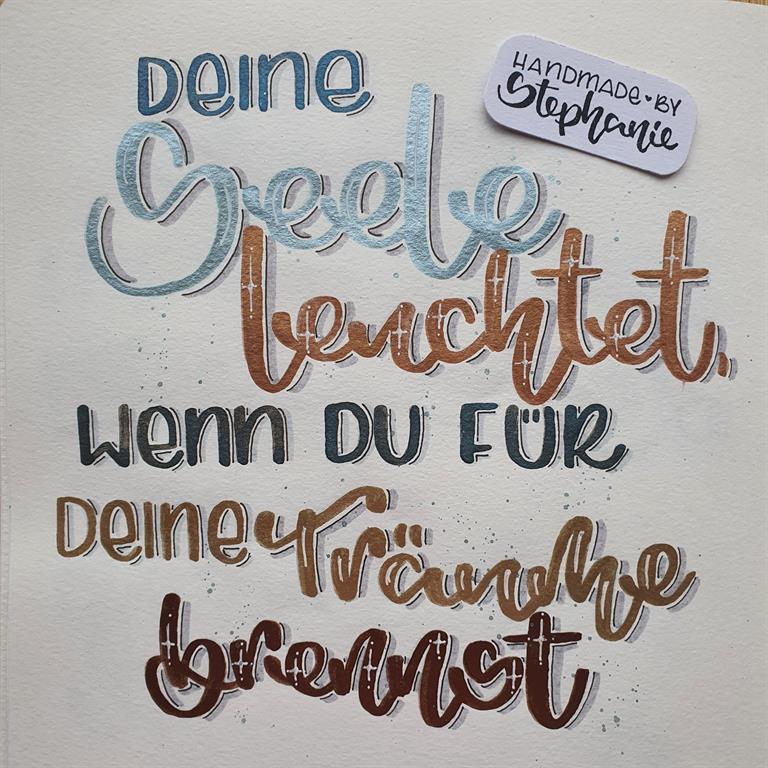 Deine
Seele
leuchtet,
wenn DU FÜR
Deine Träume
brennst
HANDMADE BY
Stephanie